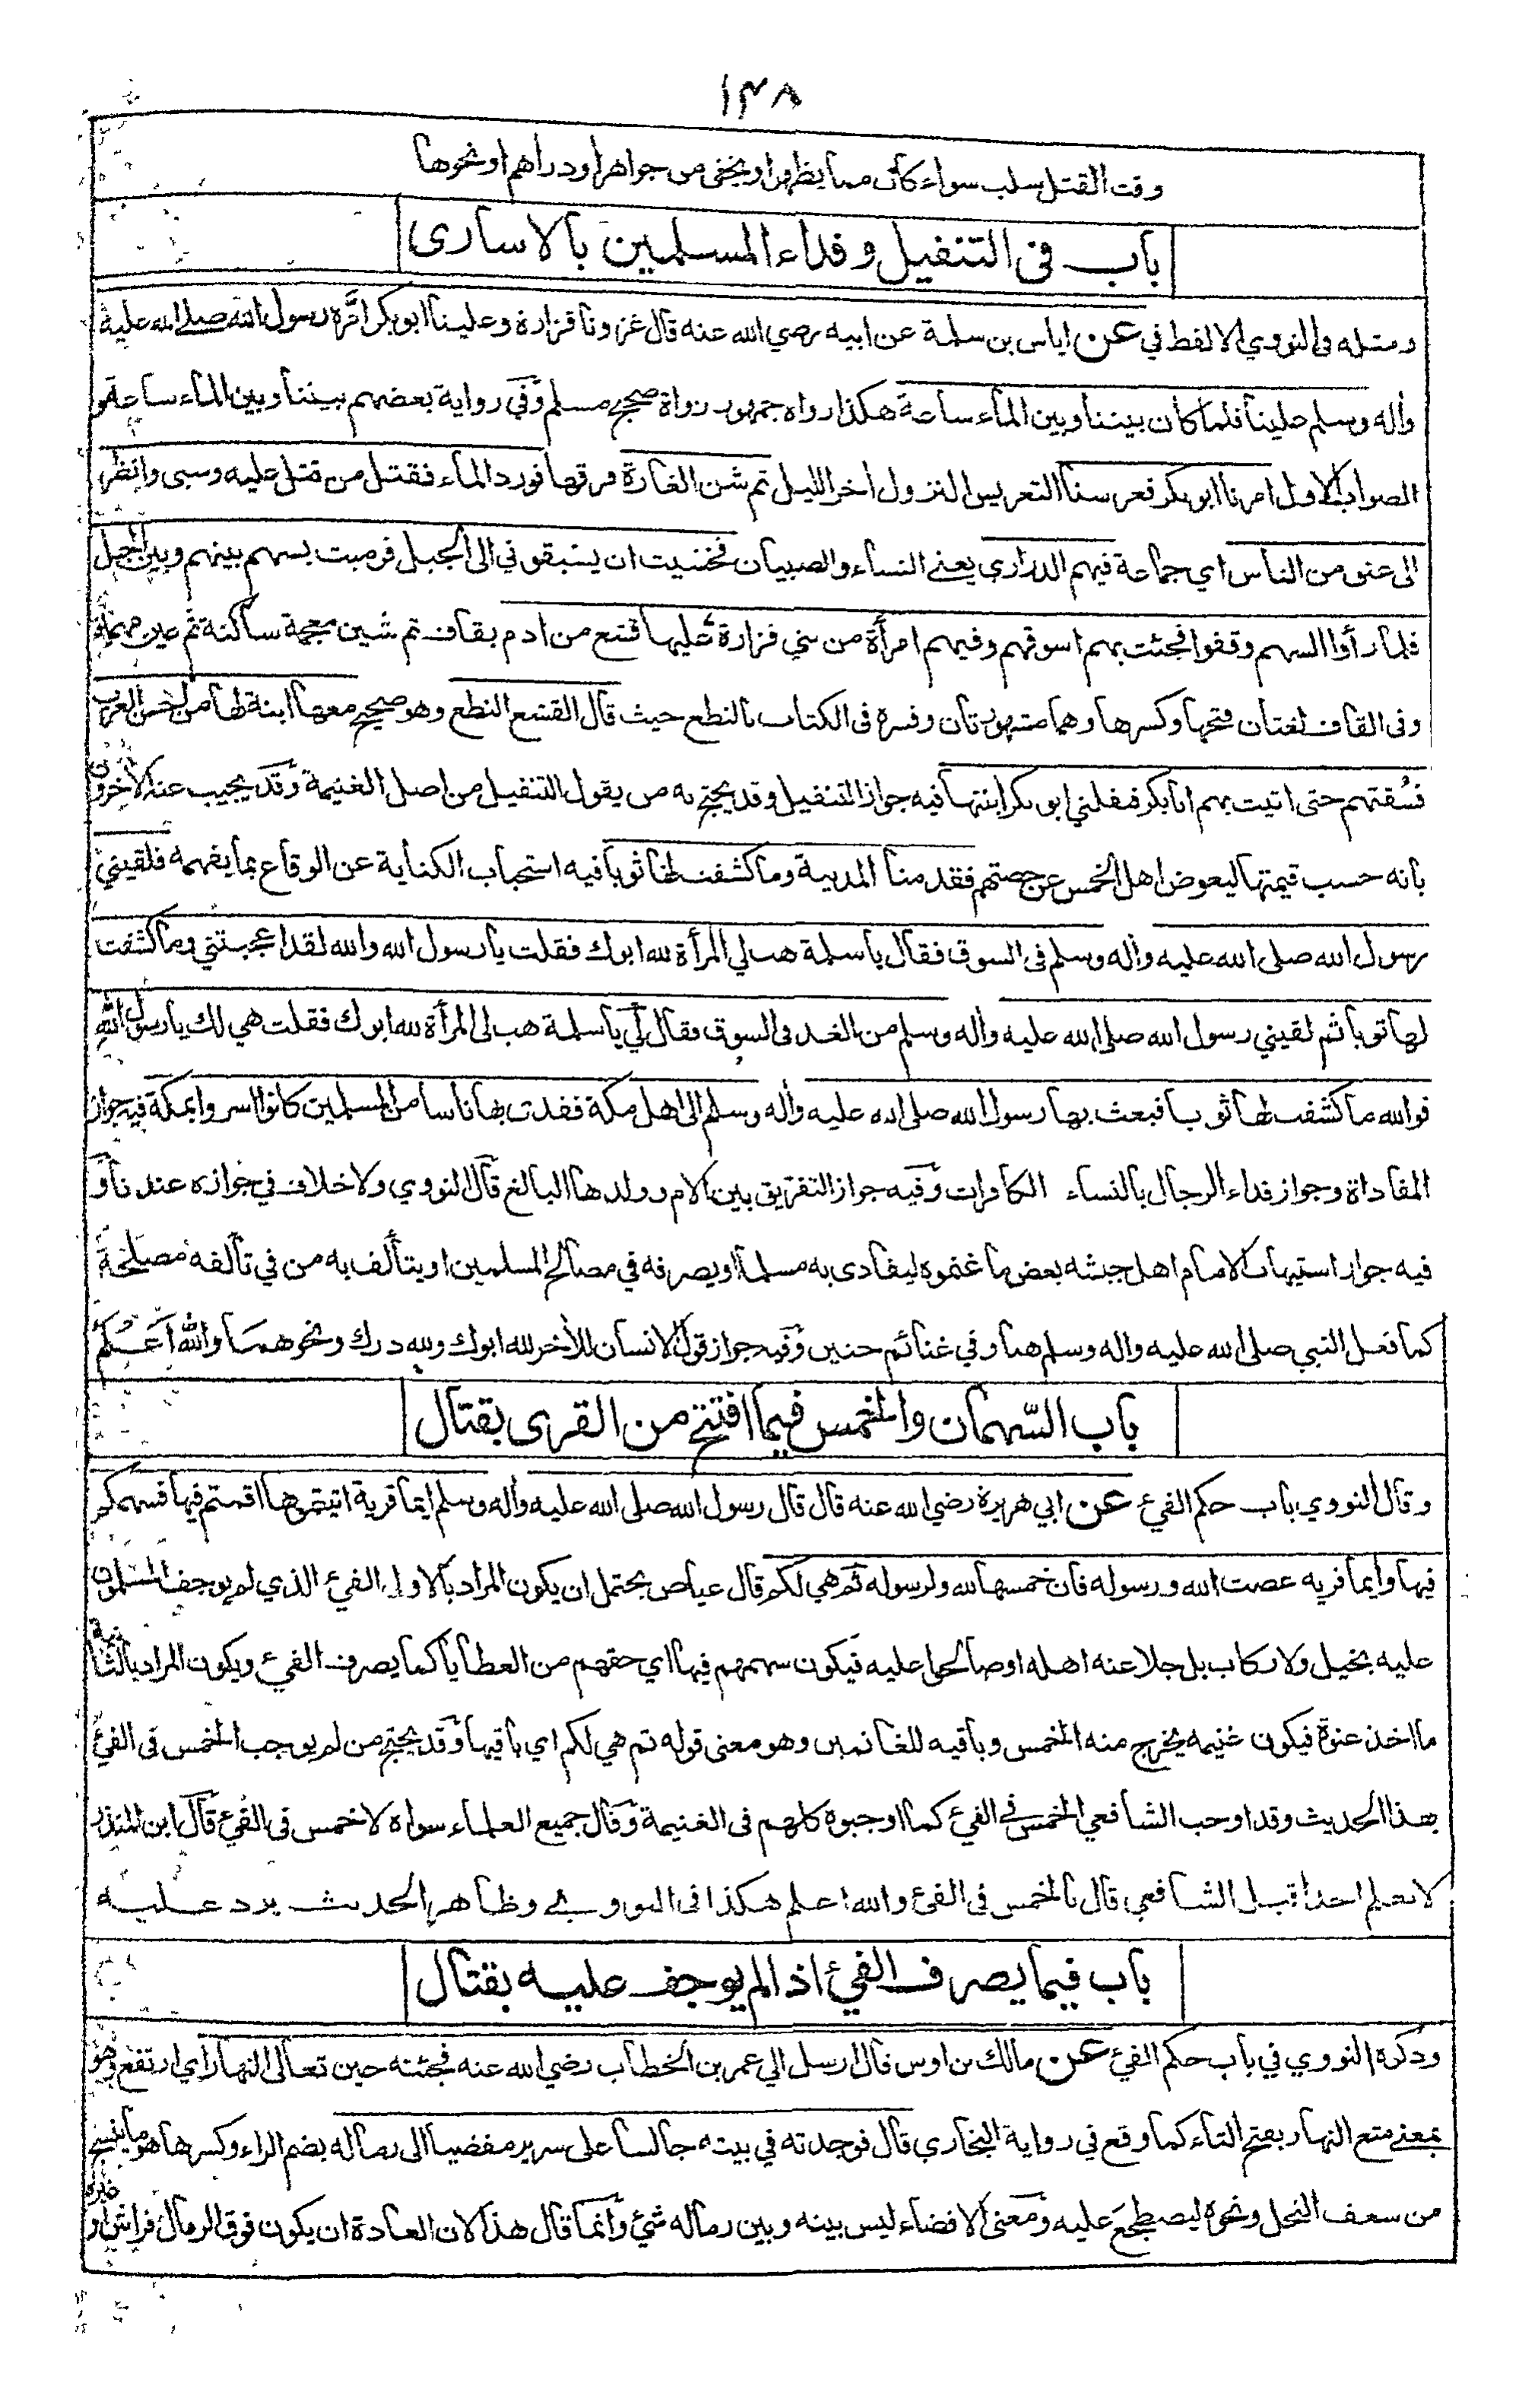 ١٣٨
وقت القتل سلب سواء كان مما يظهر او يخفى من جواهر او دراهم او نحوها
باب فى التنفيل وفداء المسلمين بالاسارى
ومثله فى النووي الا لفظ في عن اياس بن سلمة عن ابيه رضي الله عنه قال غزونا فزارة وعلينا ابو بكر امّره رسول الله صلى الله عليه
وأله وسلم علينا فلما كان بيننا وبين الماء ساعة هكذا رواه جمهور رواة صحيح مسلم وفي رواية بعضهم بيننا وبين الماء ساعة و
الصواب الاول امرنا ابو بكر فعرسنا التعريس النزول اخر الليل ثم شن الغارة فرقها فورد الماء فقتل من قتل عليه وسبى وانظر
الى عنق من الناس اي جماعة فيهم الذراري يعنے النساء والصبيان فخشيت ان يسبقوني الى الجبل فرميت بسهم بينهم وبين الجبل
فلما رأوا السهم وقفوا فجئت بهم اسوقهم وفيهم امرأة من بني فزارة عليها قشع من ادم بقاف ثم شين معجمة ساكنة ثم عين مهملة
وفى القاف لغتان فتحها وكسرها وهما مشهورتان وفسره فى الكتاب بالنطع حيث قال القشع النطع وهو صحيح معها ابنة لها من احسن العرب
فسُقتهم حتى اتيت بهم ابا بكر فنفلني ابو بكر ابنتها فيه جواز التنفيل وقد يحتج به من يقول التنفيل من اصل الغنيمة وقد يجيب عنه الأخرون
بانه حسب قيمتها ليعوض اهل الخمس عن حصتهم فقدمنا المدينة وما كشفت لها ثوبا فيه استحباب الكناية عن الوقاع بما يفهمه فلقيني
رسول الله صلى الله عليه وأله وسلم فى السوق فقال يا سلمة هب لي المرأة لله ابوك فقلت يا رسول الله والله لقد اعجبتني وما كشفت
لها ثوبا ثم لقيني رسول الله صلى الله عليه وأله وسلم من الغد فى السوق فقال لي يا سلمة هب لى المرأة لله ابوك فقلت هي لك يا رسول الله
فوالله ما كشفت لها ثوبا فبعث بها رسول الله صلى الله عليه وأله وسلم الى اهل مكة ففدت بها ناسا من المسلمين كانوا اسروا بمكة فيه جواز
المفاداة وجواز فداء الرجال بالنساء الكافرات وفيه جواز التفريق بين الام وولدها البالغ قال النووي ولا خلاف في جوازه عندنا و
فيه جواز استيهاب الامام اهل جيشه بعض ما غنموه ليفادى به مسلما او يصرفه في مصالح المسلمين او يتألف به من في تألفه مصلحة
كما فعل النبي صلى الله عليه واله وسلم هنا وفي غنائم حنين وفيه جواز قول الانسان للأخر لله ابوك ولله درك ونحوهما والله اعلم
باب السّهمان والخمس فيما افتتح من القرى بقتال
وقال النووي باب حكم الفيئ عن ابي هريرة رضي الله عنه قال قال رسول الله صلى الله عليه وأله وسلم ايما قرية اتيتموها اقمتم فيها فسهمكم
فيها وايما قريه عصت الله ورسوله فان خمسها لله ولرسوله ثم هي لكم قال عياض يحتمل ان يكون المراد بالاولى الفيئ الذي لم يوجف المسلمون
عليه بخيل ولا ركاب بل جلا عنه اهله او صالحوا عليه فيكون سهمهم فيها اي حقهم من العطايا كما يصرف الفيء ويكون المراد بالثانية
ما اخذ عنوة فيكون غنيمه يخرج منه الخمس وباقيه للغانمين وهو معنى قوله ثم هي لكم اي باقيها وقد يحتج من لم يوجب الخمس فى الفئ
بهذا الحديث وقد اوجب الشافعي الخمس في الفئ كما اوجبوه كلهم فى الغنيمة وقال جميع العلماء سواه لا خمس فى الفئ قال ابن المنذر
لا نعلم احدا قبل الشافعي قال بالخمس فى الفئ والله اعلم هكذا فى النووي وظاهر الحديث يرد عليه
باب فيما يصرف الفئ اذا لم يوجف عليه بقتال
وذكره النووي في باب حكم الفئ عن مالك بن اوس قال ارسل الي عمر بن الخطاب رضي الله عنه فجئته حين تعالى النهار اي ارتفع وهو
بمعنے متع النهار بفتح التاء كما وقع في رواية البخاري قال فوجدته في بيته جالسا على سرير مفضيا الى رماله بضم الراء وكسرها هو ما ينسج
من سعف النخل ونحوه ليضطجع عليه ومعنى الافضاء ليس بينه وبين رماله شئ وانما قال هذا لان العادة ان يكون فوق الرمال فراش او غيره